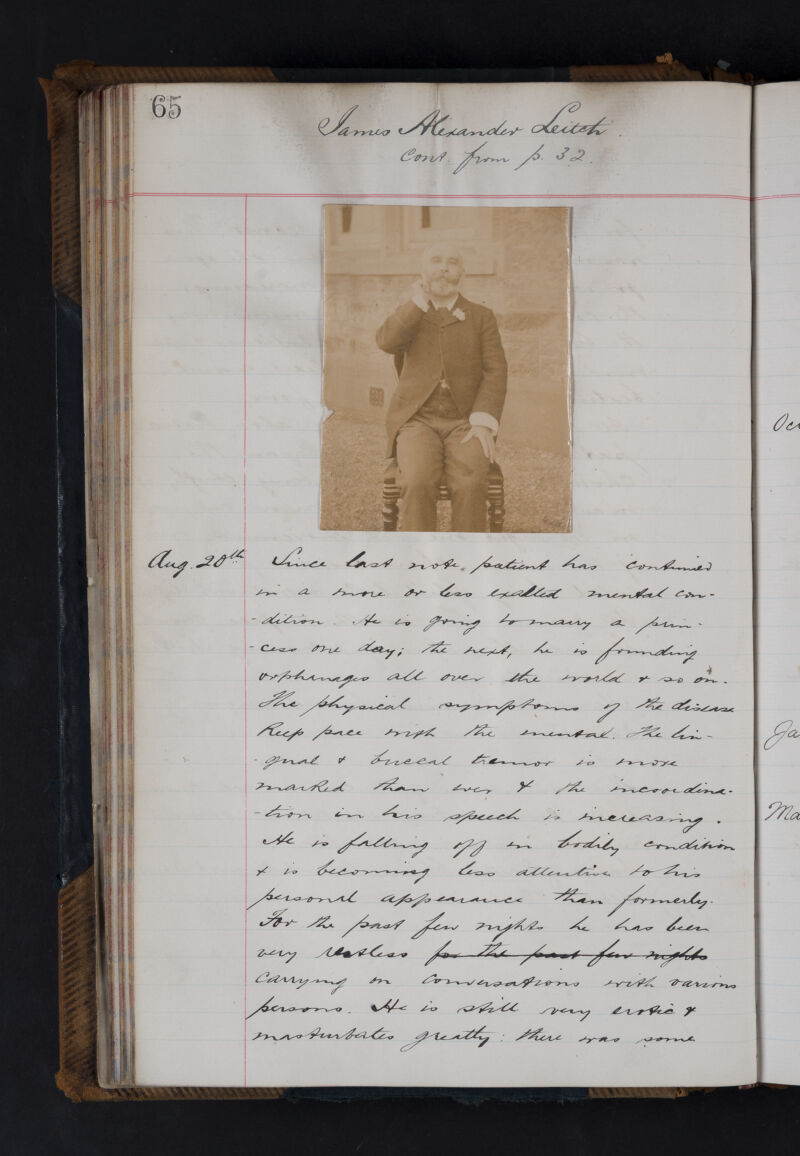 65
James Alexander Leitch.
Cont. from p. 32.
Aug. 20th Since last note, patient has continued
in a more or less exalted mental con-
-dition. He is going to marry a prin-
-cess one day; the next, he is founding
orphanages all over the world & so on.
The physical symptoms of the disease
keep pace with the mental. The lin-
-gual & buccal tremor is more
marked than ever & the incoordina-
-tion in his speech is increasing.
He is falling off in bodily condition
& is becoming less attentive to his
personal appearance than formerly.
For the past few nights he has been
very restless for the past few nights
carrying on conversations with various
persons. He is still very erotic &
masturbates greatly: there was some
Oc
Ja
Ma